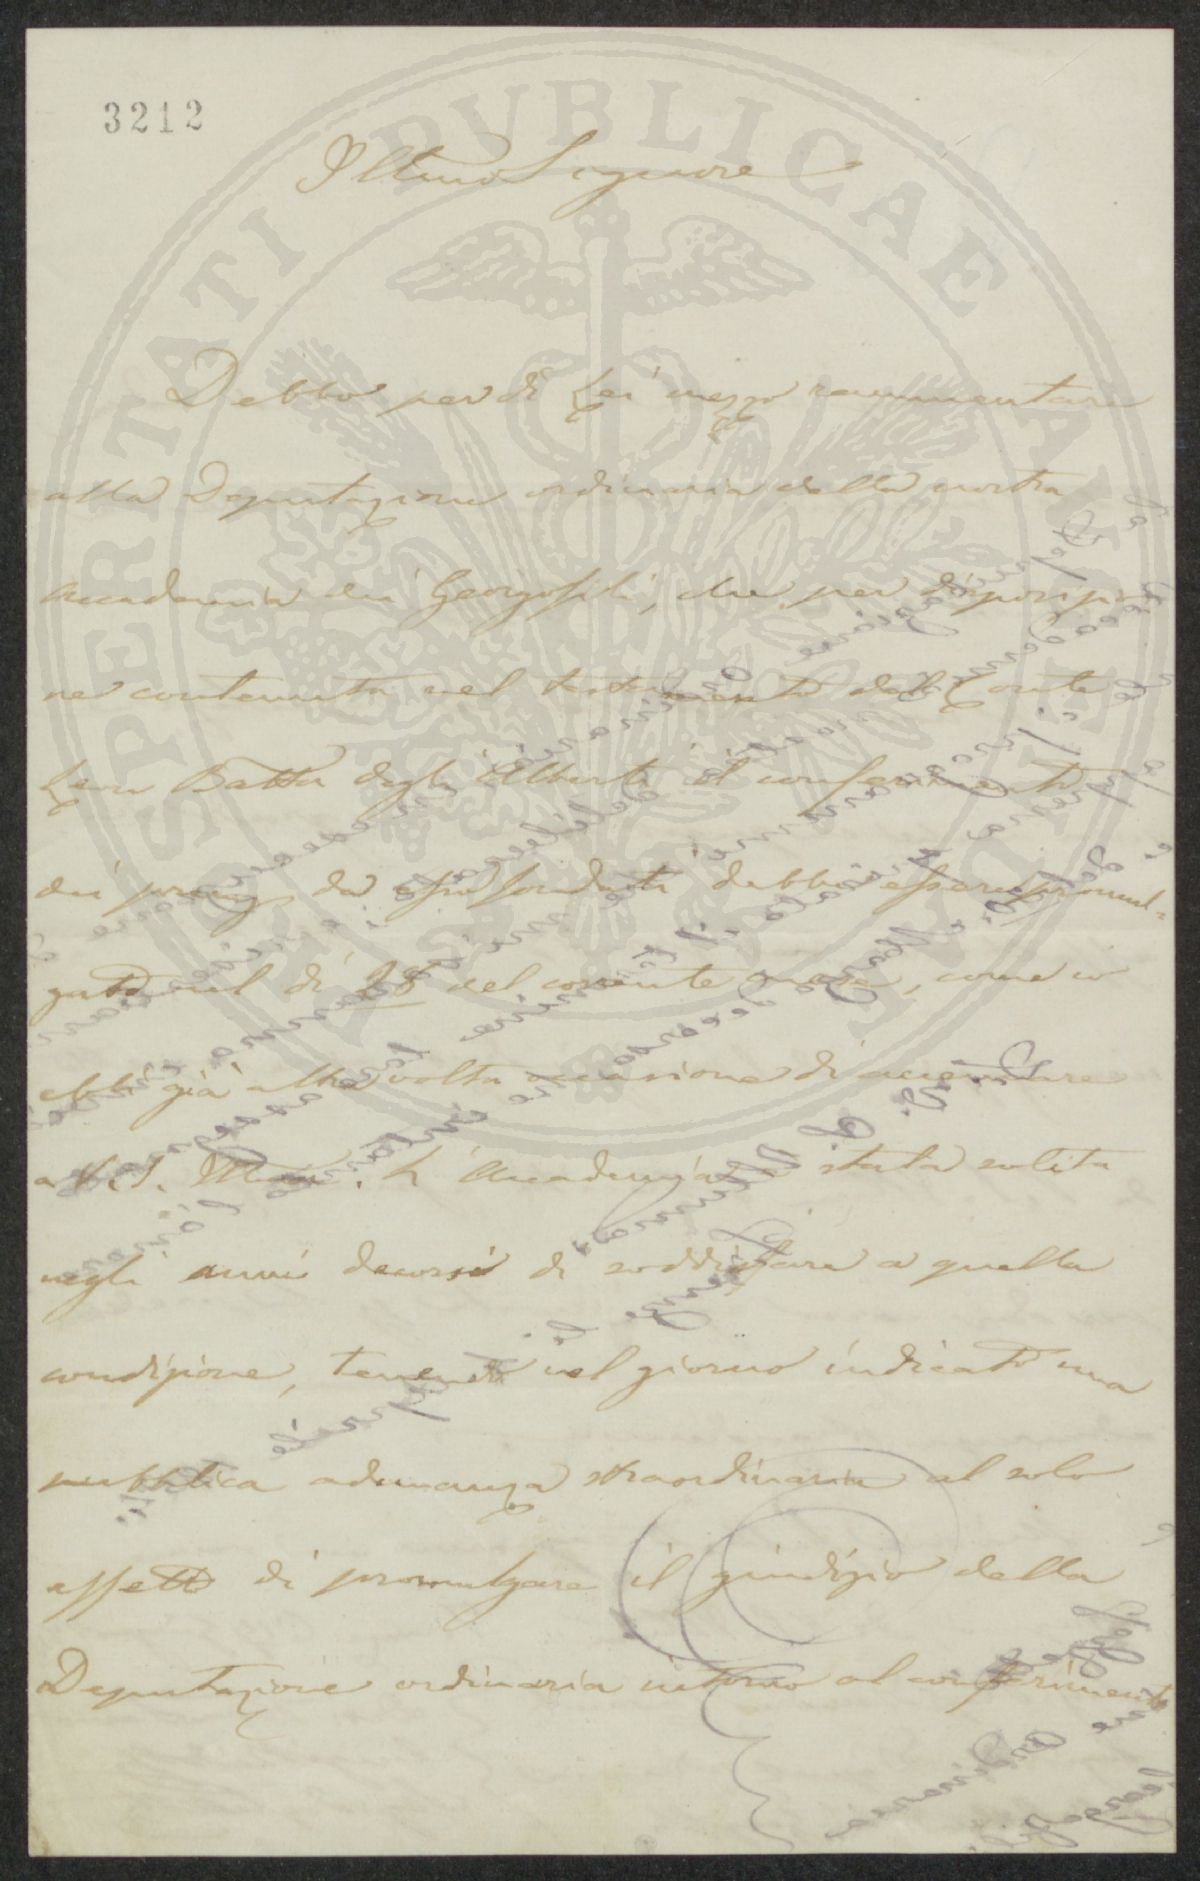 3212
PROSPERITATI PUBLICAE AUGENDAE
Illmo Signore
Debbo per di Lei mezzo rammentare
alla Deputazione ordinaria della nostra
Accademia dei Georgofili, che per disposizio
ne contenuta nel testamento del Conte
Leon Batta degli Alberti il conferimento
dei premj da esso fondati debba essere promul-
gato nel dì 28 del corrente mese, come io
ebbi già altra volta occasione di accennare
a V.S. Illma. L'Accademia è stata solita
negli anni decorsi di soddisfare a quella
condizione, tenendo nel giorno indicato una
pubblica adunanza straordinaria al solo
effetto di promulgare il giudizio della
Deputazione ordinaria intorno al conferimento